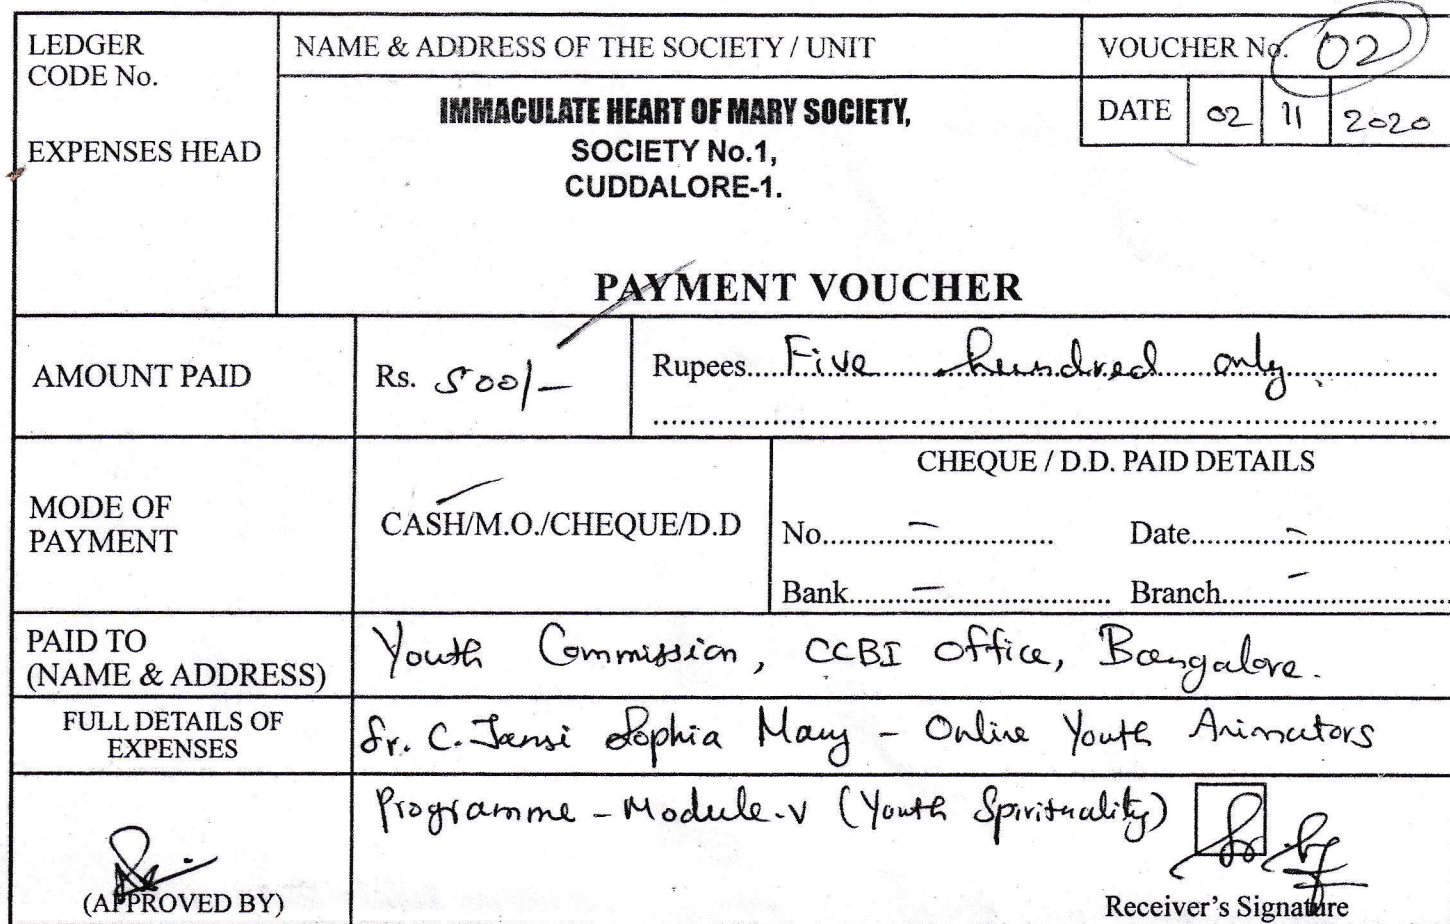 LEDGER
CODE No.
EXPENSES HEAD
NAME & ADDRESS OF THE SOCIETY / UNIT
IMMACULATE HEART OF MARY SOCIETY,
SOCIETY No.1,
CUDDALORE-1.
VOUCHER No. 02
DATE 02 11 2020
PAYMENT VOUCHER
AMOUNT PAID
Rs. 500/-
Rupees....Five hundred only.
MODE OF
PAYMENT
CASH/M.O./CHEQUE/D.D
CHEQUE / D.D. PAID DETAILS
No.....–..... Date.....–.....
Bank.....–..... Branch.....–.....
PAID TO
(NAME & ADDRESS)
Youth Commission, CCBI Office, Bangalore.
FULL DETAILS OF
EXPENSES
Sr. C. Jansi Sophia Mary - Online Youth Animators
Programme - Module-V (Youth Spirituality)
(APPROVED BY)
Receiver's Signature